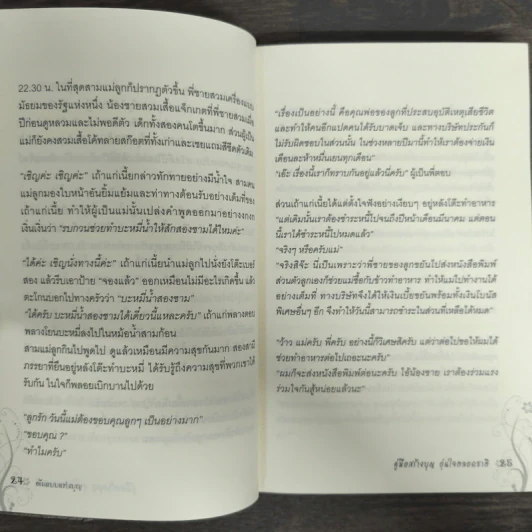 22.30 น. ในที่สุดสามแม่ลูกก็ปรากฏตัวขึ้น พี่ชายสวมเครื่องแบบ
มัธยมของรัฐแห่งหนึ่ง น้องชายสวมเสื้อแจ็กเกตที่พี่ชายสวมเมื่อ
ปีก่อนดูหลวม และไม่พอดีตัว เด็กทั้งสองคนโตขึ้นมาก ส่วนผู้เป็น
แม่ก็ยังคงสวมเสื้อโค้ทลายสก็อตที่ทั้งเก่าและเชยแถมสีซีดตัวเดิม
"เชิญค่ะ เชิญค่ะ" เถ้าแก่เนี้ยกล่าวทักทายอย่างมีน้ำใจ สามคน
แม่ลูกมองใบหน้าอันยิ้มแย้มและท่าทางต้อนรับอย่างเต็มที่ของ
เถ้าแก่เนี้ย ทำให้ผู้เป็นแม่นั้นเปล่งคำพูดออกมาอย่างงกงก
เงิ่นเงิ่นว่า "รบกวนช่วยทำบะหมี่น้ำให้สักสองชามได้ไหมค่ะ"
"ได้ค่ะ เชิญนั่งทางนี้ค่ะ" เถ้าแก่เนี้ยนำแม่ลูกไปนั่งยังโต๊ะเบอร์
สอง แล้วรีบเอาป้าย "จองแล้ว" ออกเหมือนไม่มีอะไรเกิดขึ้น แล้ว
ตะโกนบอกไปทางครัวว่า "บะหมี่น้ำสองชาม"
"ได้ครับ บะหมี่น้ำสองชามได้เดี๋ยวนี้แหละครับ" เถ้าแก่พลางตอบ
พลางโยนบะหมี่ลงไปในหม้อน้ำสามก้อน
สามแม่ลูกกินไปพูดไป ดูแล้วเหมือนมีความสุขกันมาก สองสามี
ภรรยาที่ยืนอยู่หลังโต๊ะทำบะหมี่ ได้รับรู้ถึงความสุขที่พวกเขาได้
รับกัน ในใจก็พลอยเบิกบานไปด้วย
"ลูกรัก วันนี้แม่ต้องขอบคุณลูกๆ เป็นอย่างมาก"
"ขอบคุณ ?"
"ทำไมครับ"
24
"เรื่องเป็นอย่างนี้ คือคุณพ่อของลูกที่ประสบอุบัติเหตุเสียชีวิต
และทำให้คนอีกแปดคนได้รับบาดเจ็บ และทางบริษัทประกันก็
ไม่รับผิดชอบในส่วนนั้น ในช่วงหลายปีมานี้ทำให้เราต้องจ่ายเงิน
เดือนละห้าหมื่นเยนทุกเดือน"
"เอ๊ะ เรื่องนี้เราก็ทราบกันอยู่แล้วนี่ครับ" ผู้เป็นพี่ตอบ
ส่วนเถ้าแก่เนี้ยได้แต่ตั้งใจฟังอย่างเงียบๆ อยู่หลังโต๊ะทำอาหาร
"แต่เดิมนั้นเราต้องชำระหนี้ไปจนถึงปีหน้าเดือนมีนาคม แต่ตอน
นี้เราได้ชำระหนี้ไปหมดแล้ว"
"จริงๆ หรือครับแม่"
"จริงสิจ๊ะ นี่เป็นเพราะว่าพี่ชายของลูกขยันไปส่งหนังสือพิมพ์
ส่วนตัวลูกเองก็ช่วยแม่ซื้อกับข้าวทำอาหาร ทำให้แม่ไปทำงานได้
อย่างเต็มที่ ทางบริษัทจึงได้ให้เงินเบี้ยขยันพร้อมทั้งเงินโบนัส
พิเศษอื่นๆ อีก จึงทำให้วันนี้สามารถชำระในส่วนที่เหลือได้หมด"
"ว้าว แม่ครับ พี่ครับ อย่างนี้ก็วิเศษสิครับ แต่ว่าต่อไปขอให้ผมได้
ช่วยทำอาหารต่อไปเถอะนะครับ"
"ผมก็จะส่งหนังสือพิมพ์ต่อนะครับ ไอ้น้องชาย เราต้องร่วมแรง
ร่วมใจกันสู้หน่อยแล้วนะ"
คู่มือสร้างบุญ อุ่นใจตลอดชาติ 25